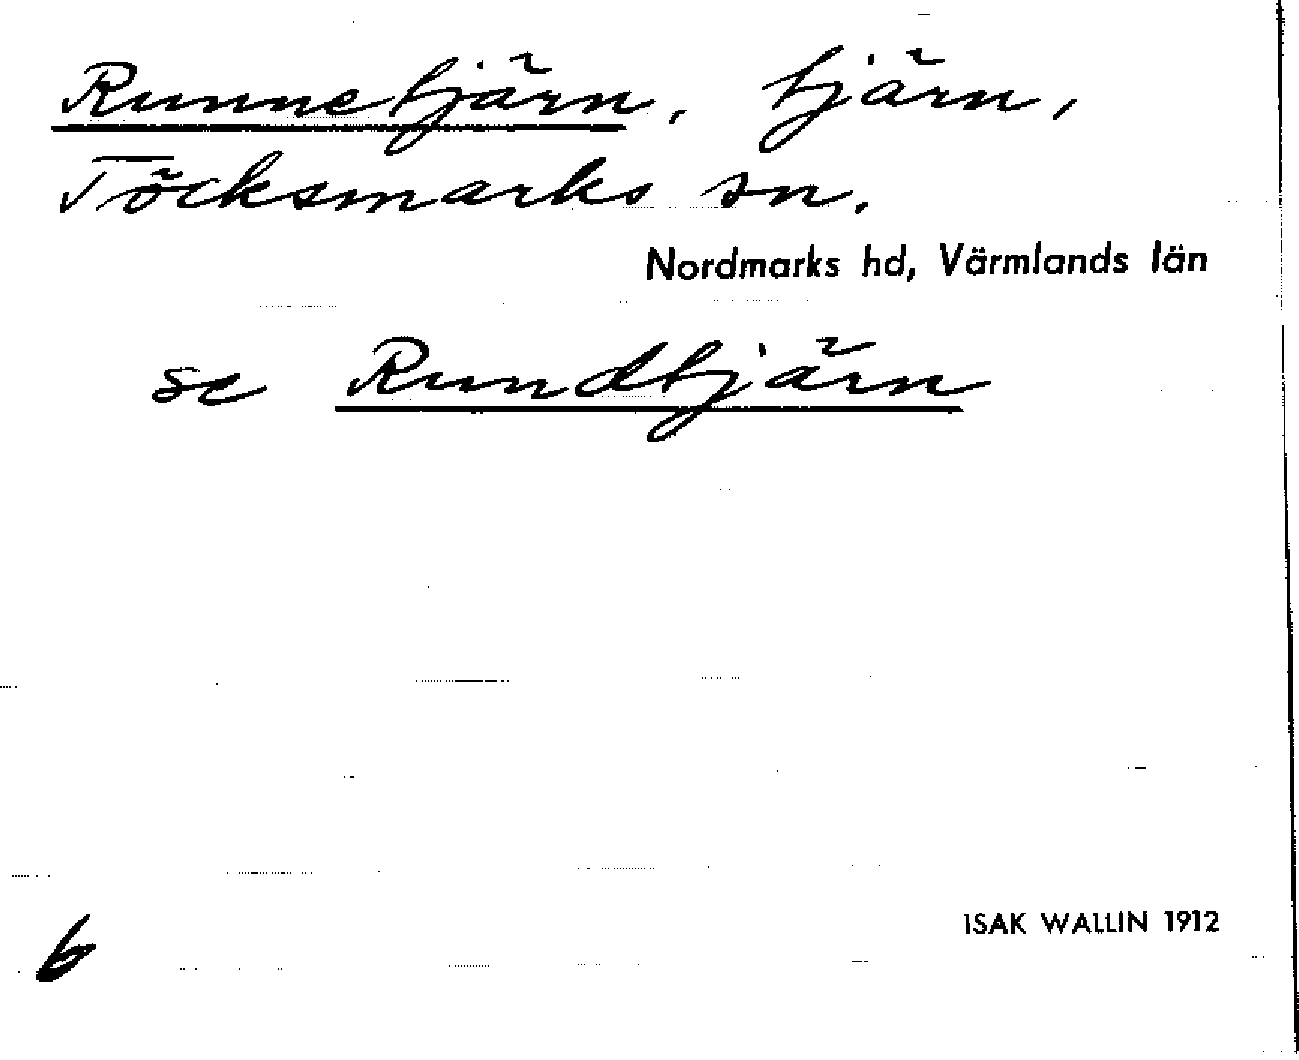 Runnetjärn, tjärn,
Töcksmarks sn.
Nordmarks hd, Värmlands län
se Rundtjärn
ISAK WALLIN 1912
6